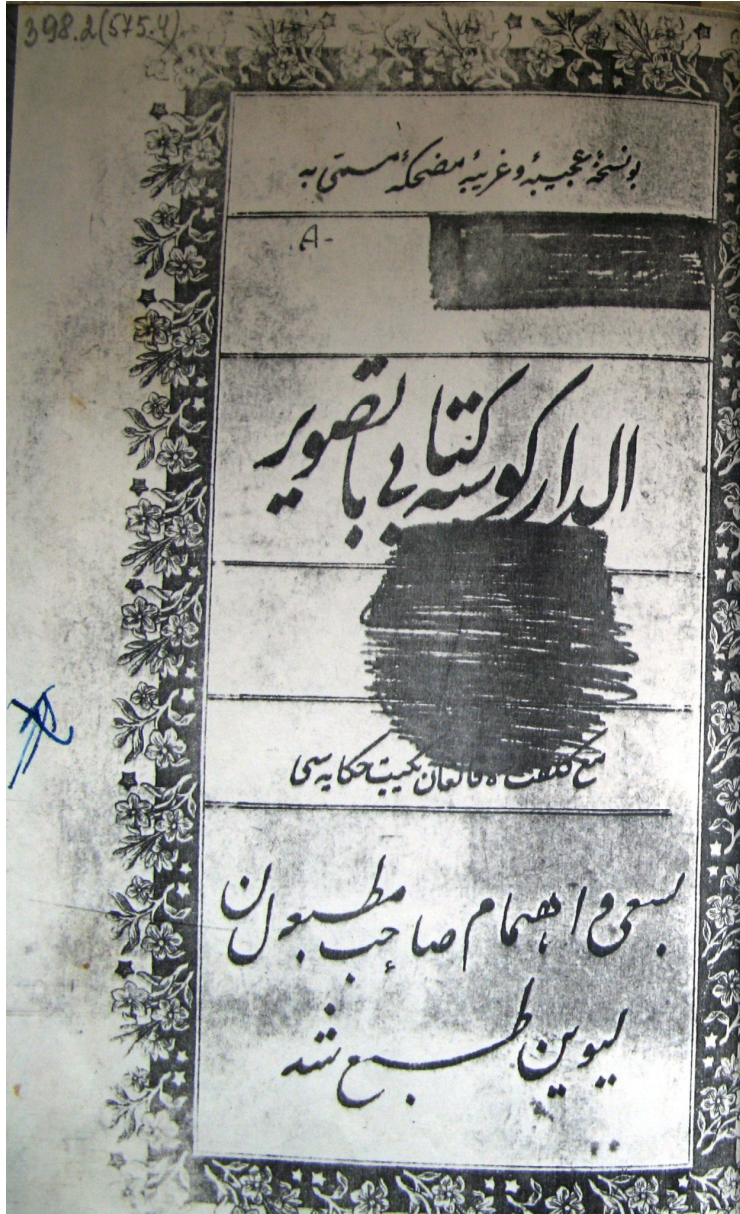 398.2(575.4)
بو نسخهٔ عجیبهٔ و غریبهٔ مضحکهٔ مسمّی به
الدار کوسه کتابی با تصویر
حکایه سی
بسعی و اهتمام صاحب مطبعه لن
لیوین طبع شد